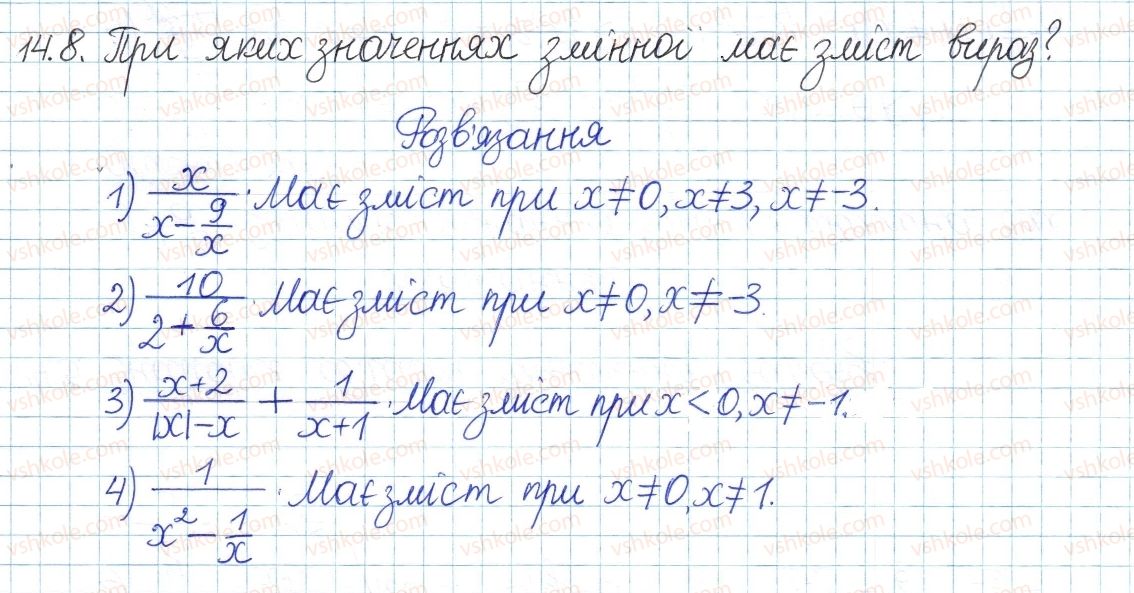 14.8. При яких значеннях змінної має зміст вираз?
Розв'язання
1) x / (x - 9/x). Має зміст при x≠0, x≠3, x≠-3.
2) 10 / (2 + 6/x). Має зміст при x≠0, x≠-3.
3) (x+2) / (|x|-x) + 1 / (x+1). Має зміст при x<0, x≠-1.
4) 1 / (x² - 1/x). Має зміст при x≠0, x≠1.